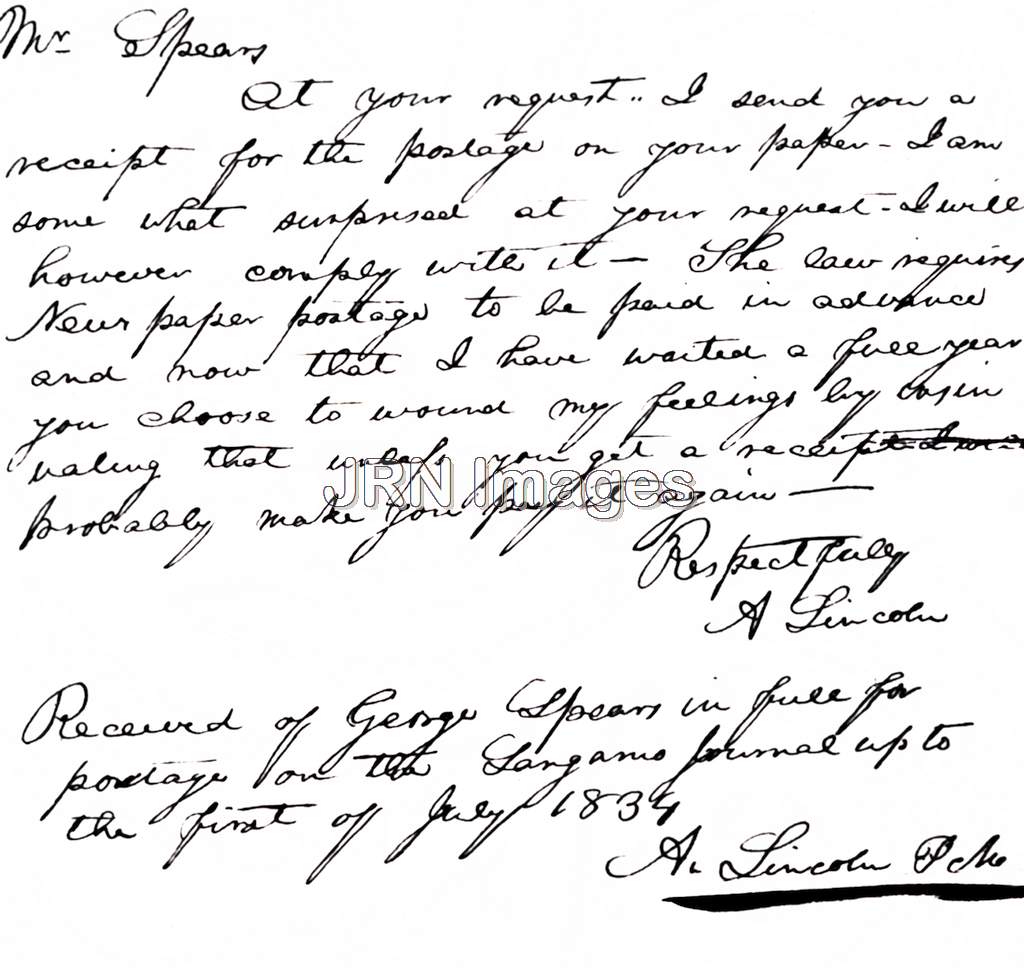 Mr Spears
At your request.. I send you a
receipt for the postage on your paper - I am
some what surprised at your request - I will
however comply with it — The law requires
News paper postage to be paid in advance
and now that I have waited a full year
you choose to wound my feelings by insin
uating that unless you get a receipt I will
probably make you pay it again —
JRN Images
Respectfully
A Lincoln
Received of George Spears in full for
postage on the Sangamo Journal up to
the first of July 1834
A. Lincoln P M